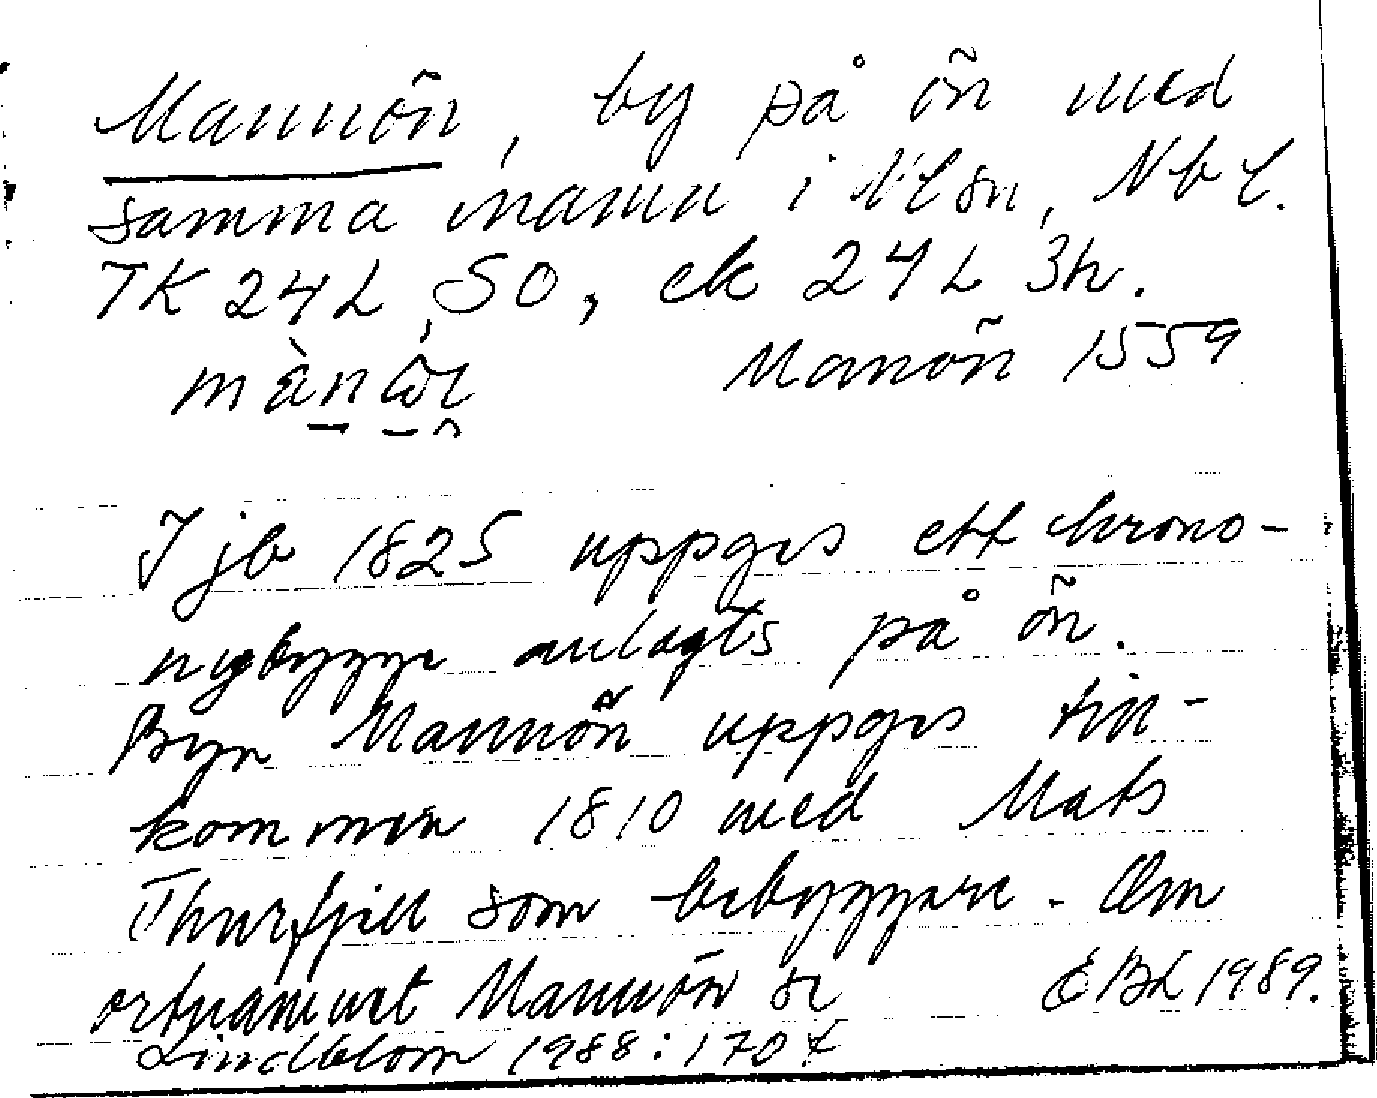 Mannön, by på ön med
samma namn i Nlsn, Nbl.
TK 24L SO, ek 24L 3h.
Manön 1559
I jb 1825 uppges ett krono-
nybygge anlagts på ön.
Byn Mannön uppges till-
kommen 1810 med Mats
Thurfjell som bebyggare. Om
ortnamnet Mannön se
EBL 1989.
Lindblom 1988:170 f